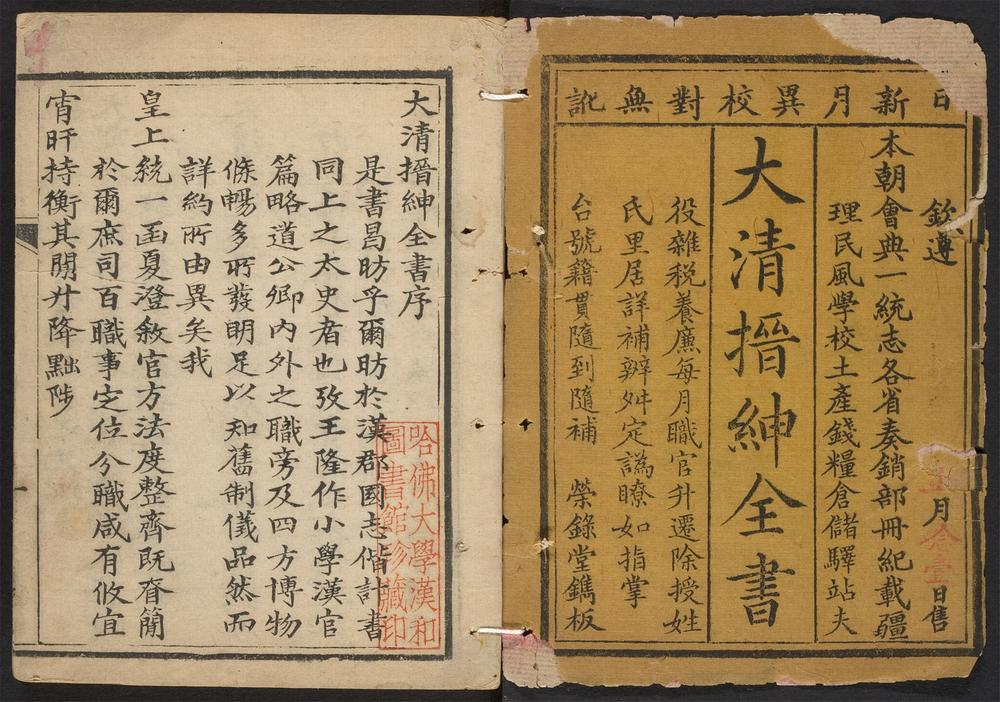 日新月異校對無訛
欽遵 月拾壹日售
本朝會典一統志各省奏銷部冊紀載疆
理民風學校土產錢糧倉儲驛站夫
大清搢紳全書
役雜稅養廉每月職官升遷除授姓
氏里居詳補辨舛定譌瞭如指掌
台號籍貫隨到隨補 榮錄堂鐫板
大清搢紳全書序
是書昌昉乎爾昉於漢郡國志偕計書
同上之太史者也攷王隆作小學漢官
篇略道公卿內外之職旁及四方博物
條暢多所發明足以知舊制儀品然而
詳約所由異矣我
皇上統一函夏澄敘官方法度整齊既脊簡
於爾庶司百職事定位分職咸有攸宜
宵旰持衡其閒升降黜陟
哈佛大學漢和
圖書館珍藏印